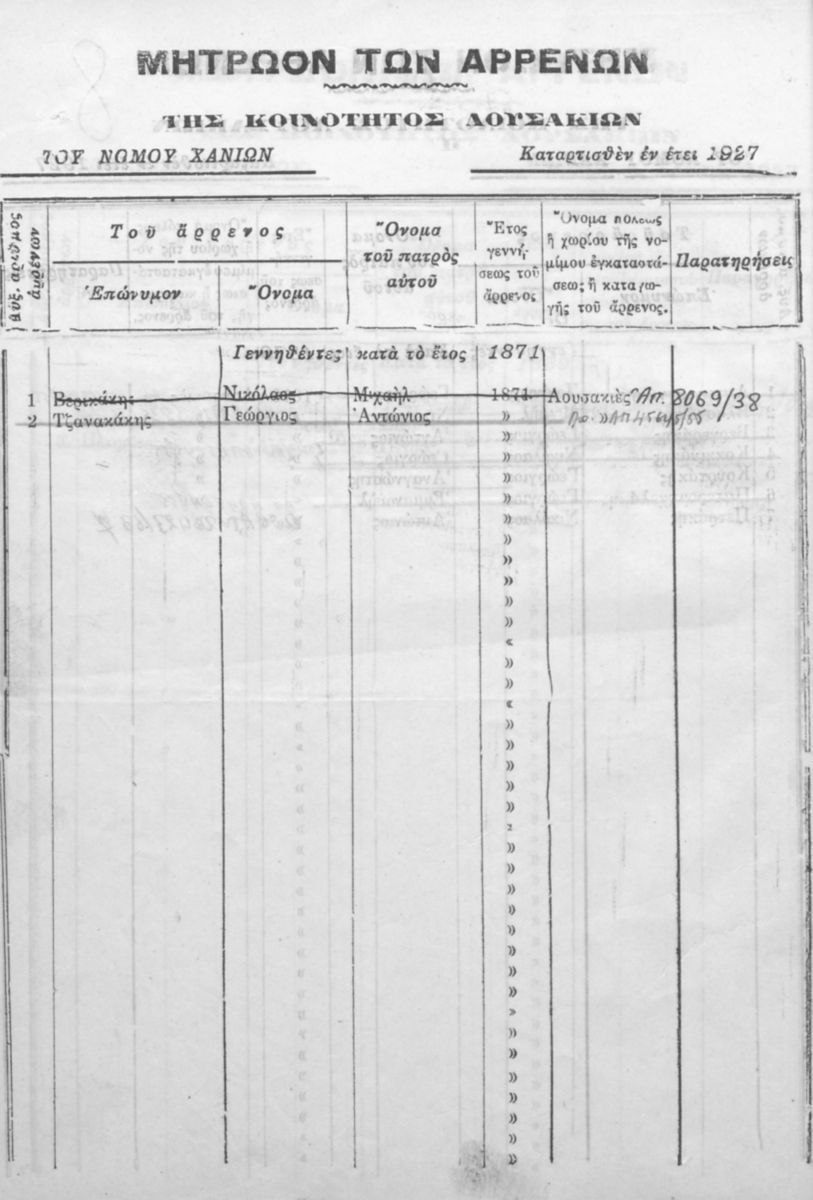 ΜΗΤΡΩΟΝ ΤΩΝ ΑΡΡΕΝΩΝ
ΤΗΣ ΚΟΙΝΟΤΗΤΟΣ ΛΟΥΣΑΚΙΩΝ
ΤΟΥ ΝΟΜΟΥ ΧΑΝΙΩΝ
Καταρτισθὲν ἐν ἔτει 1927
Αὔξ. ἀριθμὸς
ἀρρένων
Τοῦ ἄρρενος
Ἐπώνυμον
Ὄνομα
Ὄνομα
τοῦ πατρὸς
αὐτοῦ
Ἔτος
γεννή-
σεως τοῦ
ἄρρενος
Ὄνομα πόλεως
ἢ χωρίου τῆς νο-
μίμου ἐγκαταστά-
σεως ἢ καταγω-
γῆς τοῦ ἄρρενος.
Παρατηρήσεις
Γεννηθέντες κατὰ τὸ ἔτος 1871
1 Βερικάκης Νικόλαος Μιχαὴλ 1871 Λουσακιὲς Ἀπ. 8069/38
2 Τζανακάκης Γεώργιος Ἀντώνιος » »
»
»
»
»
»
»
»
»
»
»
«
»
»
«
»
»
»
»
»
»
»
»
»
»
»
»
»
»
»
»
»
»
»
»
»
»